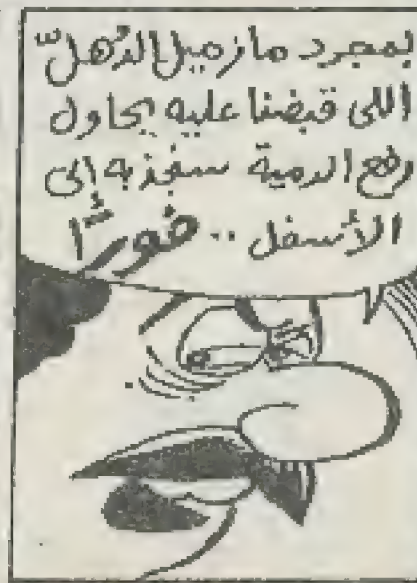 بمجرد ما زميل الذهل
اللى قبضنا عليه يحاول
رفع الدمية سنجذبه إلى
الأسفل .. فورًا